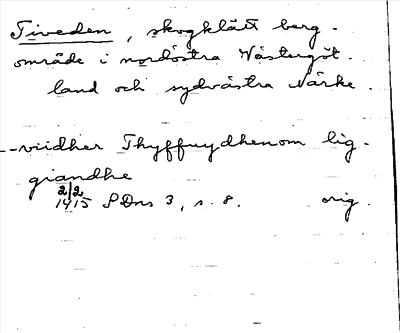 Tiveden, skogklätt berg-
område i nordöstra Västergöt-
land och sydvästra Närke.
--viidher Thyffuydhenom lig-
giandhe
2/2
1415 SDns 3, s. 8. orig.